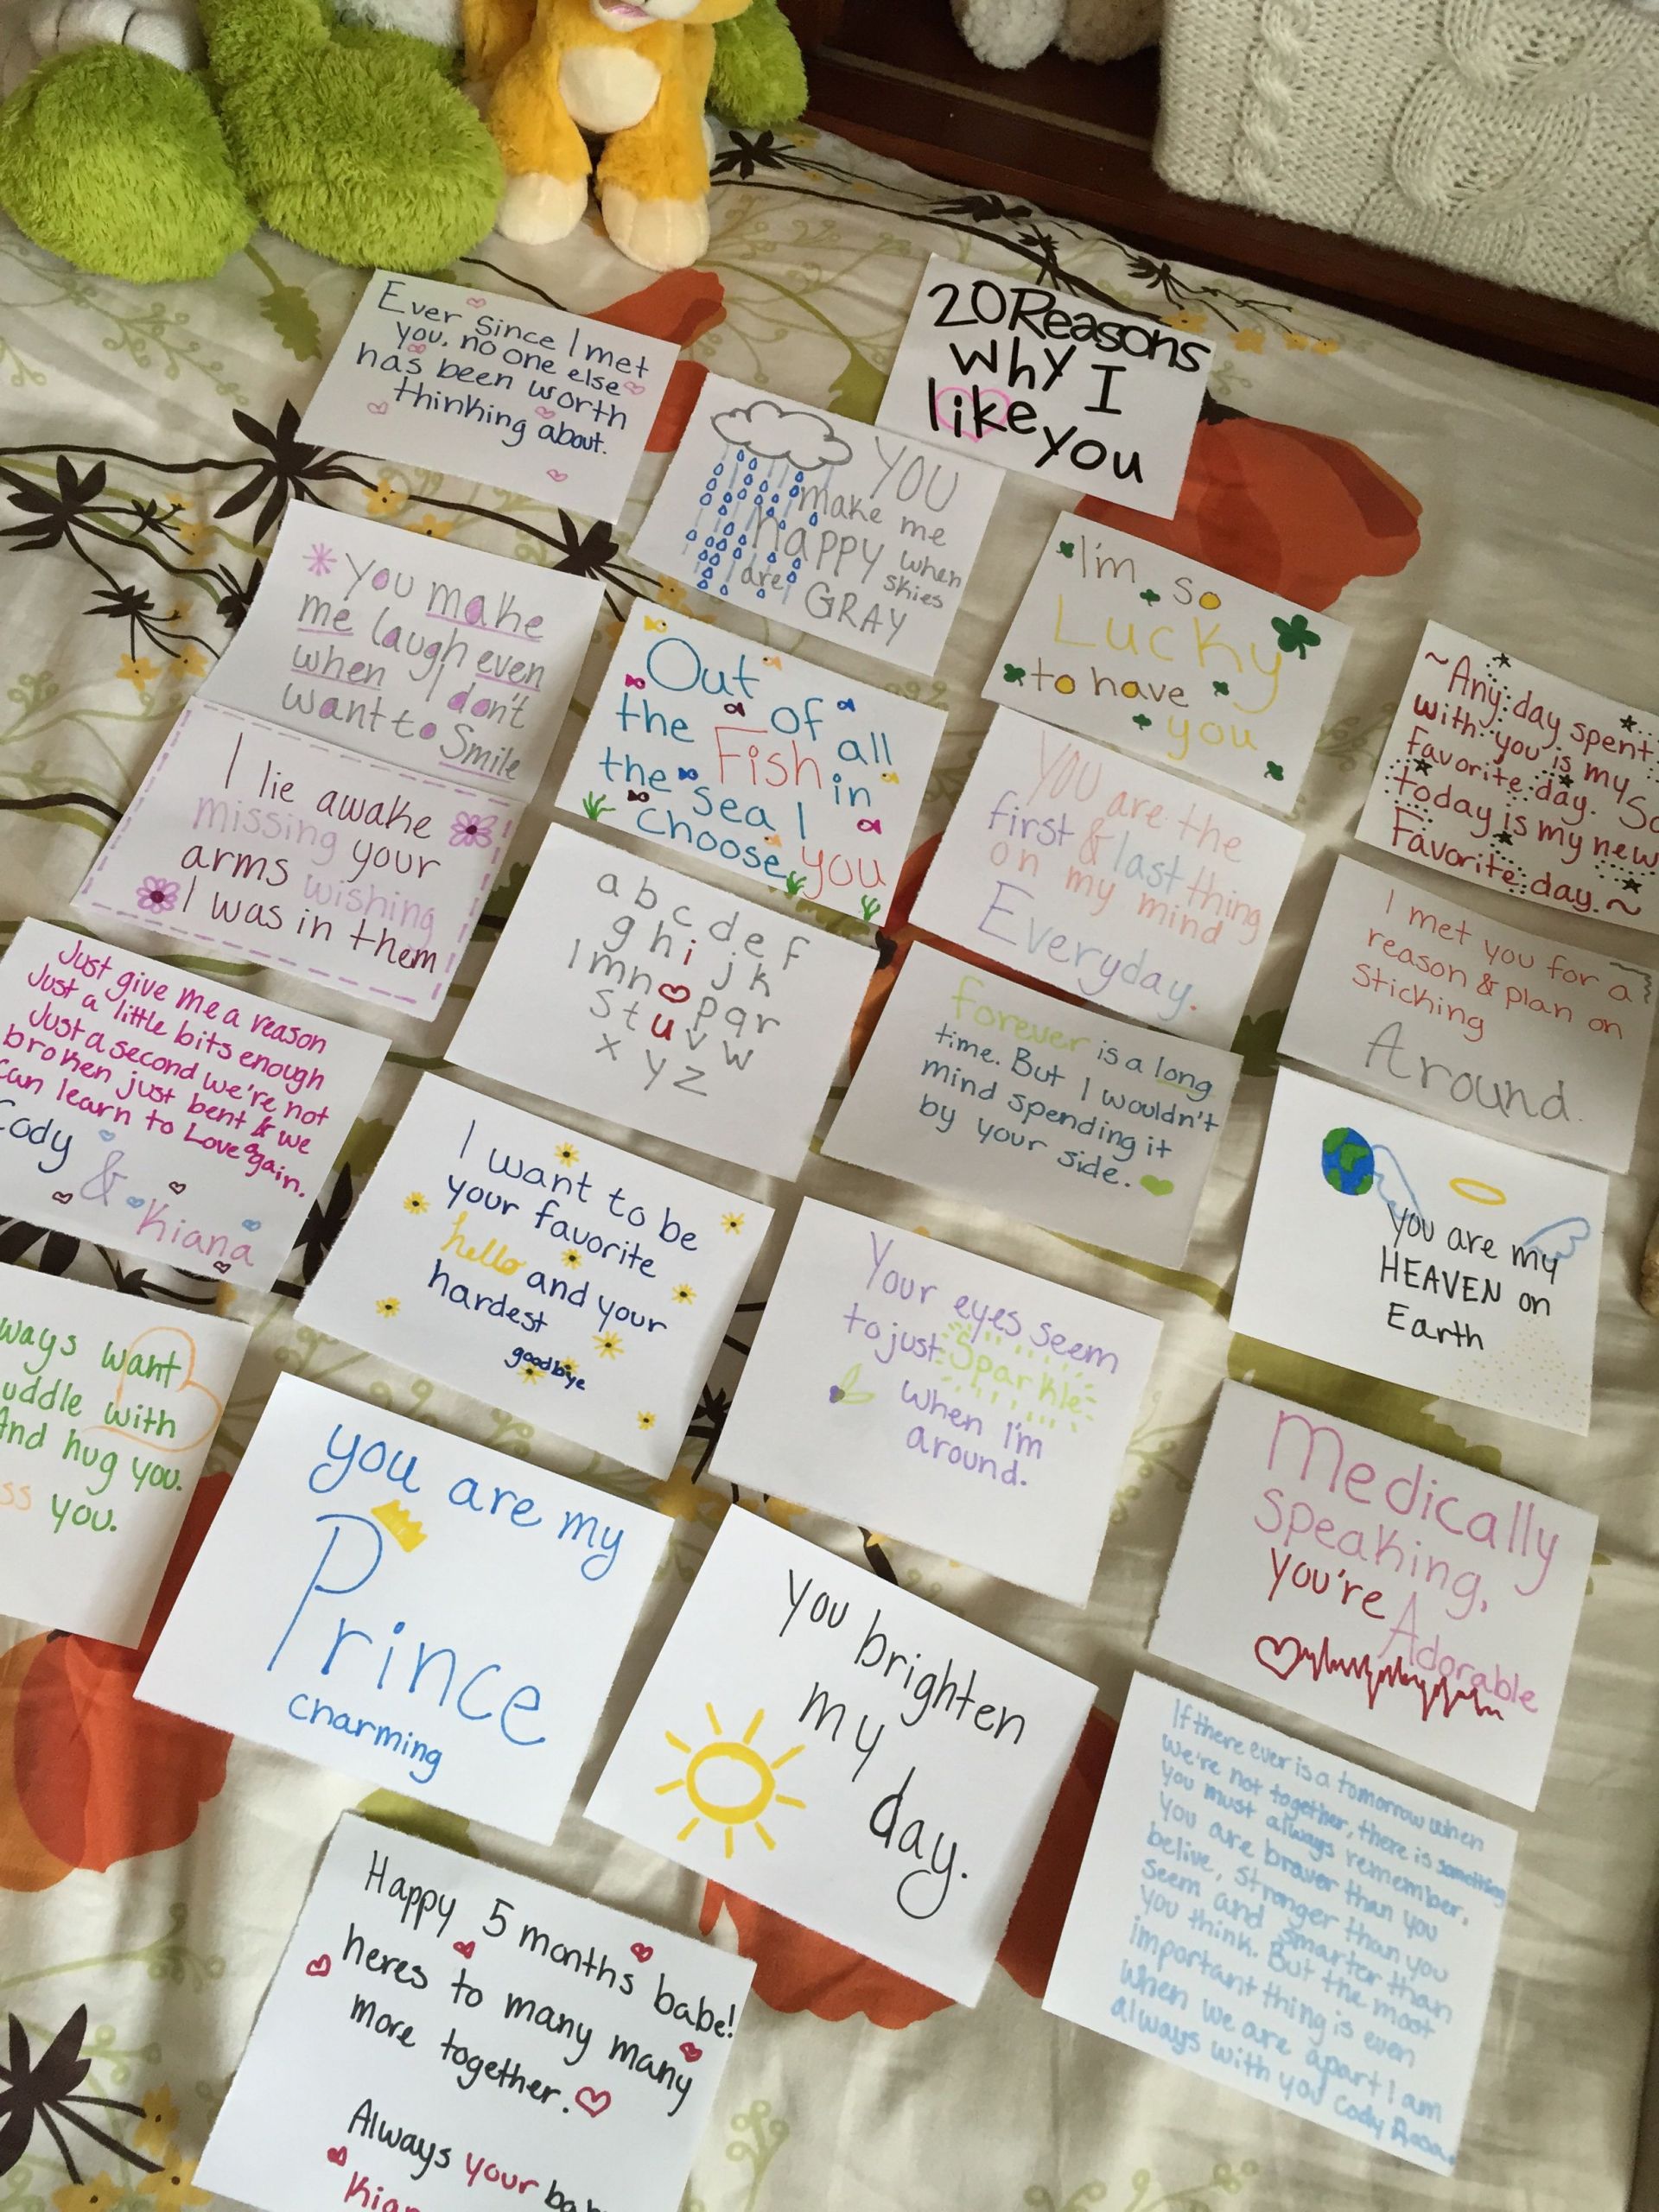 20 Reasons
why I
like you
Ever since I met
you, no one else
has been worth
thinking about.
YOU
make me
Happy when
skies
are GRAY
I'm so
Lucky
to have
you
~Any day spent
with you is my
favorite day. So
today is my new
Favorite day.~
You make
me laugh even
when I don't
want to Smile
Out of all
the Fish in
the sea I
choose you
You are the
first & last thing
on my mind
Everyday.
I met you for a
reason & plan on
Sticking
Around.
I lie awake
missing your
arms wishing
I was in them
a b c d e f
g h i j k
l m n o p q r
s t u v w
x y z
forever is a long
time. But I wouldn't
mind spending it
by your side.
you are my
HEAVEN on
Earth
Just give me a reason
Just a little bits enough
Just a second we're not
broken just bent & we
can learn to Love again.
Cody
&
Kiana
I want to be
your favorite
hello and your
hardest
goodbye
Your eyes seem
to just Sparkle
when I'm
around.
Medically
speaking,
you're Adorable
ways want
uddle with
And hug you.
ss you.
you are my
Prince
charming
You brighten
my
day.
If there ever is a tomorrow when
we're not together, there is something
you must always remember,
you are braver than you
belive, stronger than you
seem and smarter than
you think. But the most
important thing is even
when we are apart I am
always with you Cody
Happy 5 months babe!
heres to many many
more together.
Always your bab
Kian